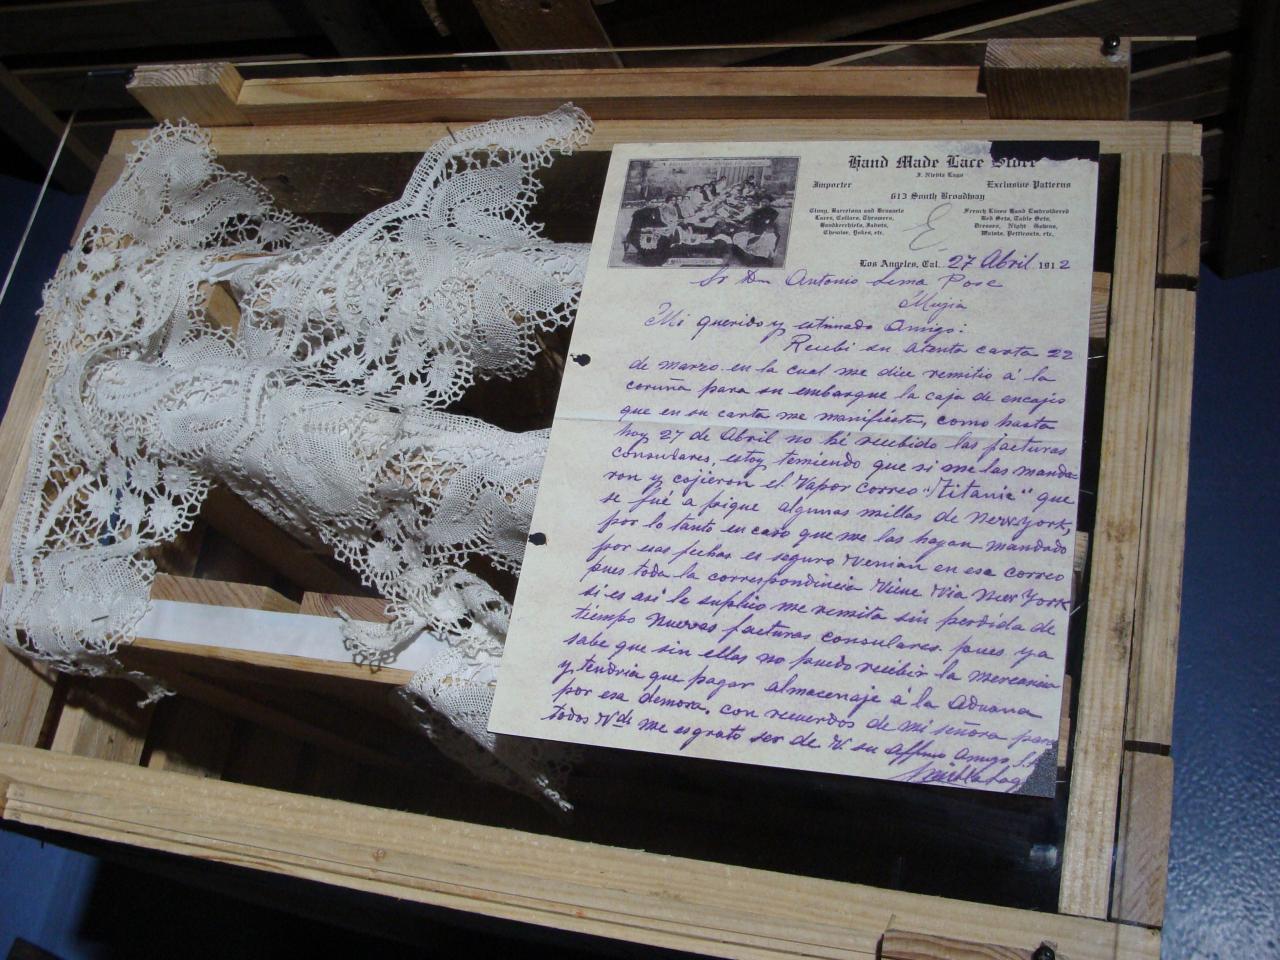 Hand Made Lace Store
J. Nieria Lago
Importer
Exclusive Patterns
613 South Broadway
Cluny, Barcelona and Brussels
Laces, Collars, Throwers,
Handkerchiefs, Jabots,
Chemise, Yokes, etc.
French Linen Hand Embroidered
Bed Sets, Table Sets,
Dresses, Night Gowns,
Waists, Petticoats, etc.
Los Angeles, Cal. 27 Abril 1912
Sr Dn Antonio Lema Pose
Mugia
Mi querido y estimado Amigo:
Recibi su atenta carta 22
de marzo en la cual me dice remitio á la
coruña para su embarque la caja de encajes
que en su carta me manifiesta, como hasta
hoy 27 de Abril no hé recibido las facturas
consulares, estoy temiendo que si me las manda-
ron y cojieron el Vapor Correo "Titanic" que
se fué a pique algunas millas de New York,
por lo tanto en caso que me las hayan mandado
por esas fechas es seguro Venian en ese correo
pues toda la correspondincia Viene Via New York
si es asi le suplico me remita sin perdida de
tiempo Nuevas facturas consulares pues ya
sabe que sin ellas no puedo recibir la mercancia
y tendria que pagar almacenaje á la Aduana
por esa demora. con recuerdos de mi señora para
todos Vds me es grato ser de V su affmo Amigo S.S.